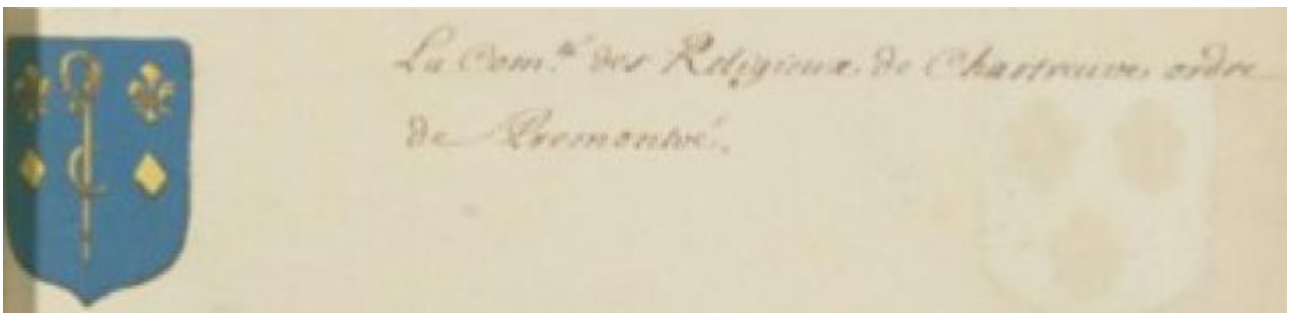 La Com.té des Religieux de Chartreuve, ordre
de Premontré.